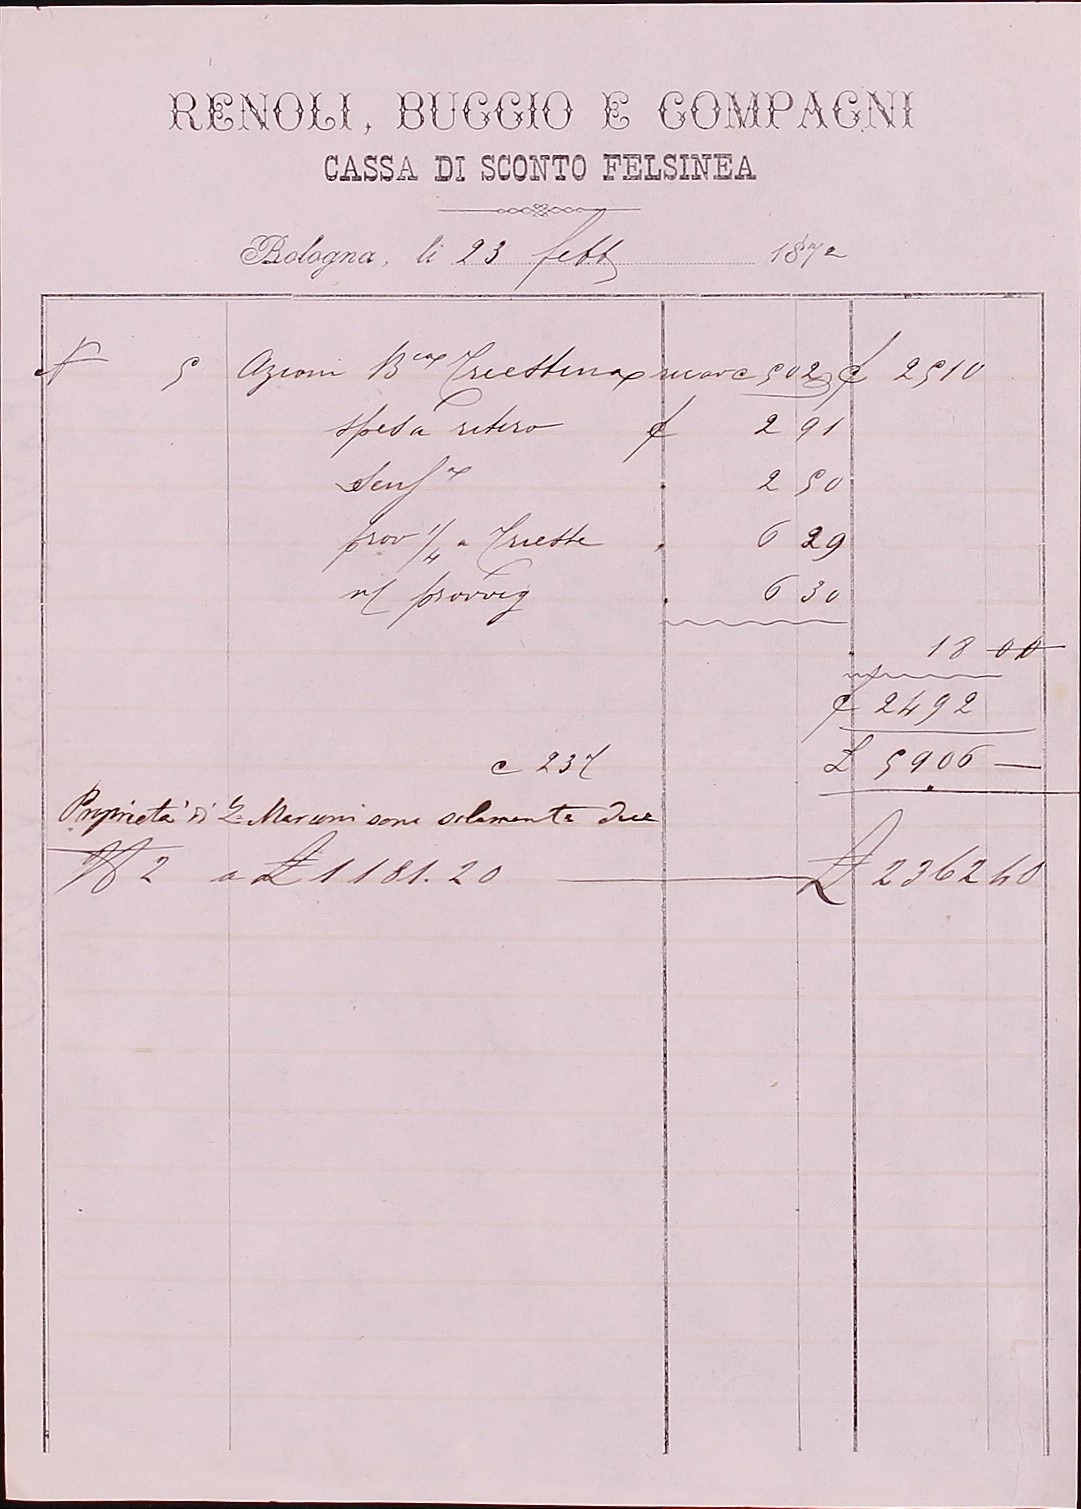 RENOLI, BUGGIO E COMPAGNI
CASSA DI SCONTO FELSINEA
Bologna, li 23 febb 1872
N 5 Azioni B.ca Triestina a 502 f 2510
spesa ritiro f 2 91
Sens.a " 2 50
prov 1/4 a Trieste " 6 29
n/ provvig " 6 30
" 18 00
f 2492
c 237 £ 5906 —
Proprietà di G. Marconi sono solamente due
N 2 a £ 1181.20 — £ 2362 40